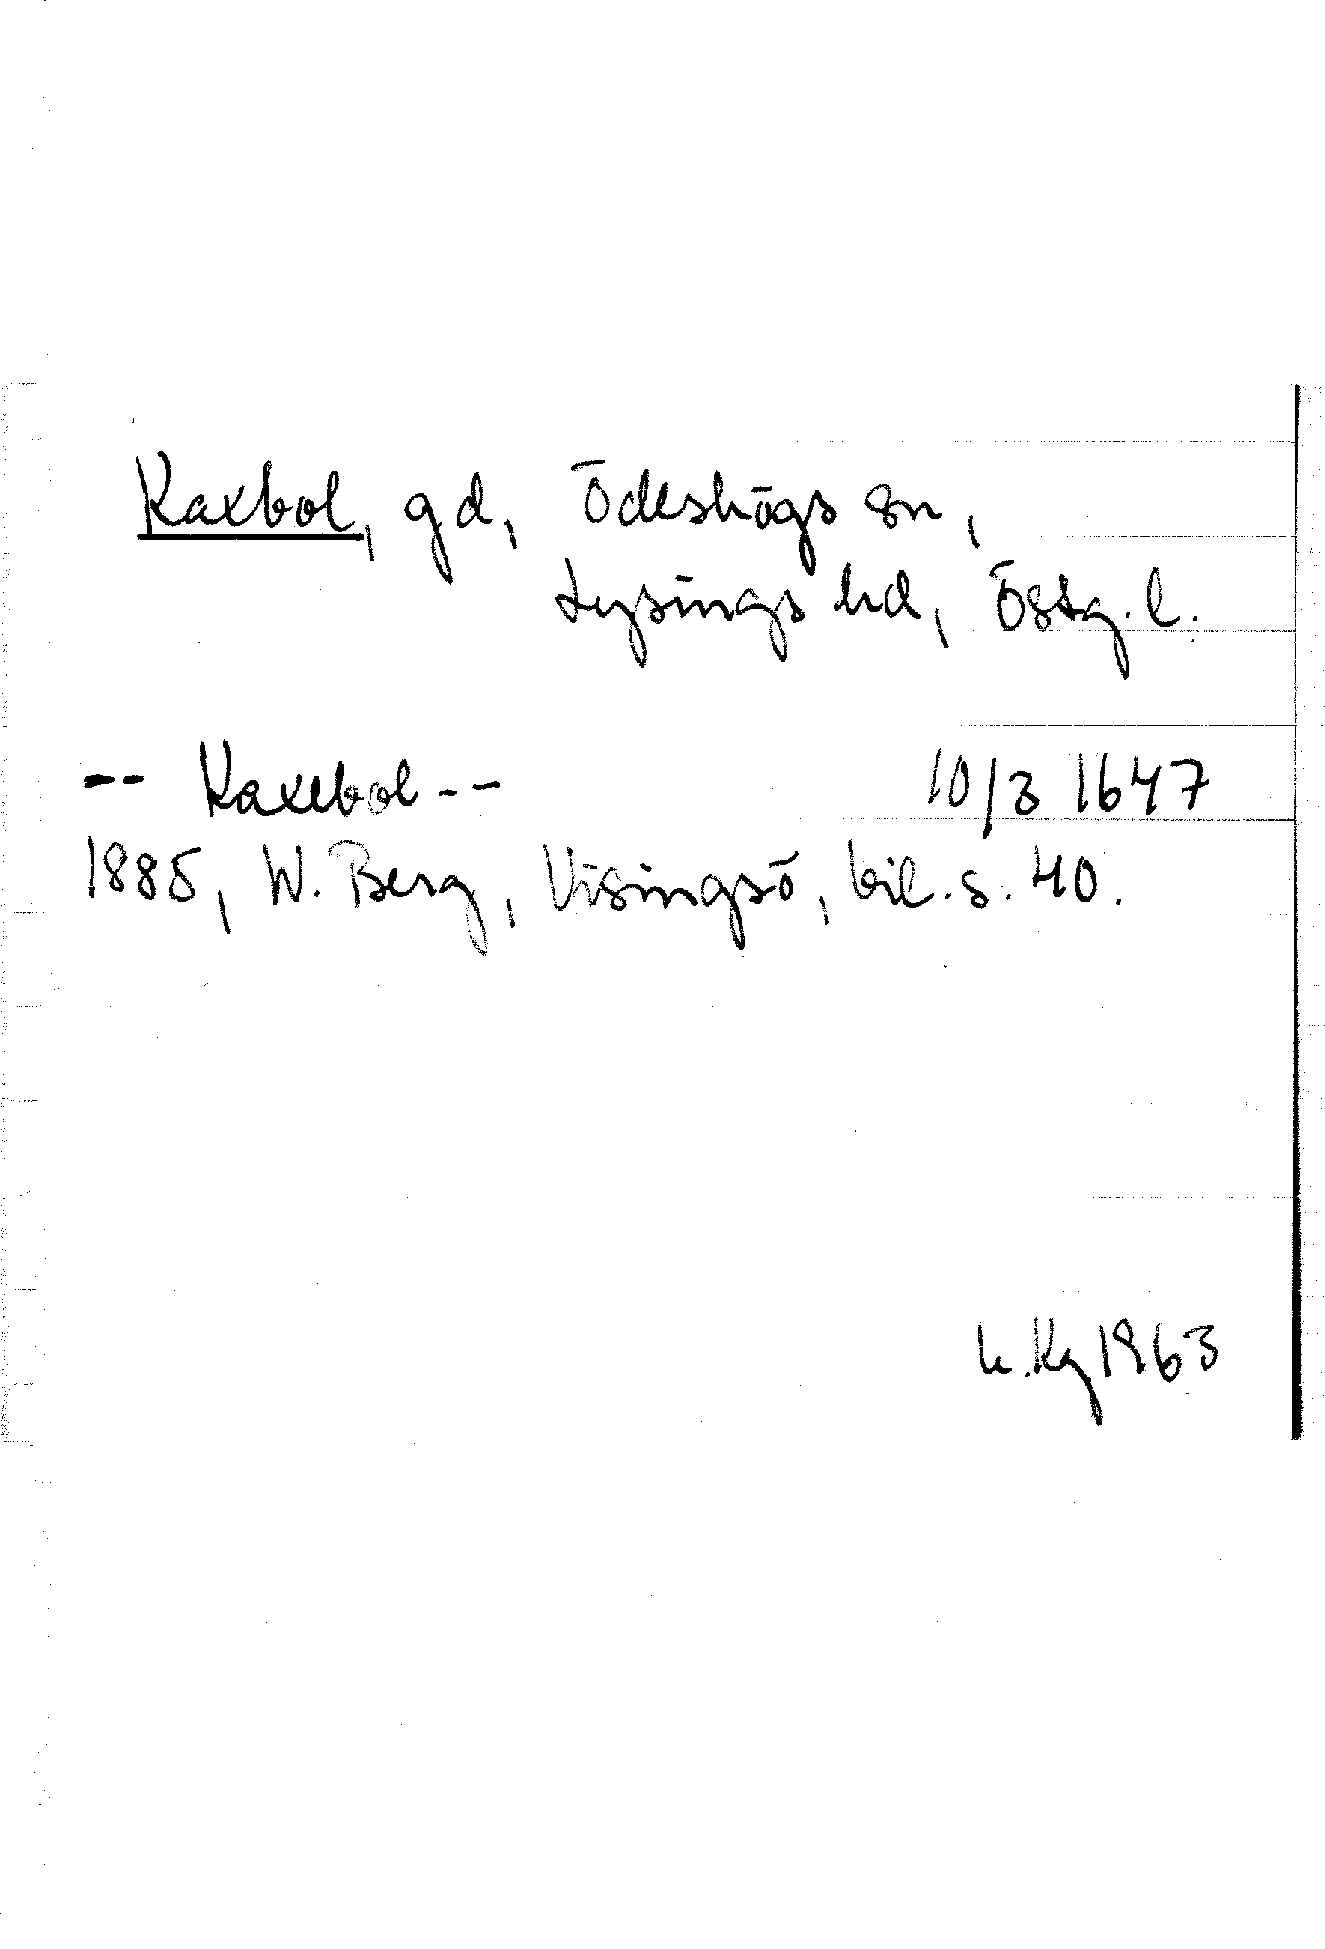 Kaxbol, gd, Ödeshögs sn,
Lysings hd, Östg. l.
-- Kaxebol -- 10/3 1647
1885, W. Berg, Visingsö, bil. s. 40.
L. Kg 1963